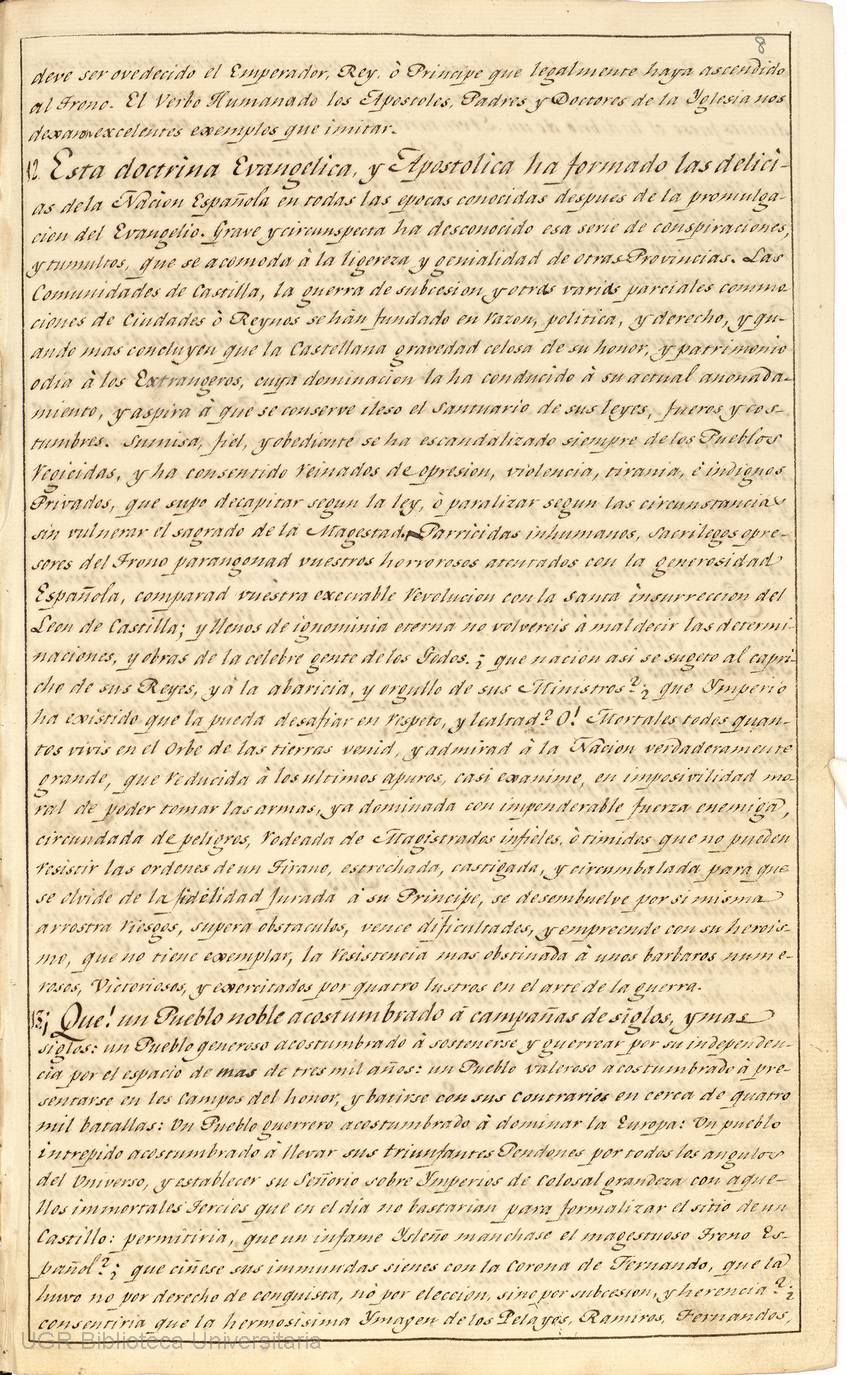 8
deve ser ovedecido el Emperador, Rey, ò Principe que legalmente haya ascendido
al Trono. El Verbo Humanado los Apostoles, Padres y Doctores de la Yglesia nos
dexaron excelentes exemplos que imitar.
12. Esta doctrina Evangelica, y Apostolica ha formado las delici-
as dela Nacion Española en todas las epocas conocidas despues de la promulga-
cion del Evangelio. Grave y circunspecta ha desconocido esa serie de conspiraciones,
y tumultos, que se acomoda à la ligereza y genialidad de otras Provincias. Las
Comunidades de Castilla, la guerra de subcesion y otras varias parciales conmo
ciones de Ciudades ò Reynos se hàn fundado en razon, politica, y derecho, y qu-
ando mas concluyen que la Castellana gravedad celosa de su honor, y patrimonio
odia à los Extrangeros, cuya dominacion la ha conducido à su actual anonada-
miento, y aspira à que se conserve ileso el Santuario de sus leyes, fueros y cos-
tumbres. Sumisa, fiel, y obediente se ha escandalizado siempre de los Pueblos
Regicidas, y ha consentido Reinados de opresion, violencia, tirania, è indignos
Privados, que supo decapitar segun la ley, ò paralizar segun las circunstancias
sin vulnerar el sagrado de la Magestad. Parricidas inhumanos, sacrilegos opre-
sores del Trono parangonad vuestros horrorosos atentados con la generosidad
Española, comparad vuestra execrable revolucion con la santa insurreccion del
Leon de Castilla; y llenos de ignominia eterna no volvereis à maldecir las determi-
naciones, y obras de la celebre gente de los Godos. ¿ que nacion asi se sugeto al capri-
cho de sus Reyes, y à la abaricia, y orgullo de sus Ministros? ¿ que Ymperio
ha existido que la pueda desafiar en respeto, y lealtad? O! Mortales todos quan-
tos vivis en el Orbe de las tierras venid, y admirad à la Nacion verdaderamente
grande, que reducida à los ultimos apuros, casi exanime, en imposivilidad mo-
ral de poder tomar las armas, ya dominada con imponderable fuerza enemiga,
circundada de peligros, rodeada de Magistrados infieles, ò timidos que no pueden
resistir las ordenes de un Tirano, estrechada, castigada, y circumbalada para que
se olvide de la fidelidad jurada à su Principe, se desembuelve por si misma
arrostra riesgos, supera obstaculos, vence dificultades, y emprende con su herois-
mo, que no tiene exemplar, la resistencia mas obstinada à unos barbaros nume-
rosos, Victoriosos, y exercitados por quatro lustros en el arte de la guerra.
13. ¡ Que! un Pueblo noble acostumbrado à campañas de siglos, y mas
siglos: un Pueblo generoso acostumbrado à sostenerse y guerrear por su independen-
cia por el espacio de mas de tres mil años: un Pueblo valeroso acostumbrado à pre-
sentarse en los campos del honor, y batirse con sus contrarios en cerca de quatro
mil batallas: Un Pueblo guerrero acostumbrado à dominar la Europa: Un pueblo
intrepido acostumbrado à llevar sus triunfantes Pendones por todos los angulos
del Universo, y establecer su Señorio sobre Ymperios de Colosal grandeza con aque-
llos immortales Tercios que en el dia no bastarian para formalizar el sitio de un
Castillo: permitiria, que un infame Ysleño manchase el magestuoso Trono Es-
pañol? ¿ que ciñese sus immundas sienes con la Corona de Fernando, que la
huvo no por derecho de conquista, nò por eleccion, sino por subcesion, y herencia? ¿
consentiria que la hermosisima Ymagen de los Pelàyos, Ramiros, Fernandos,
UGR Biblioteca Universitaria